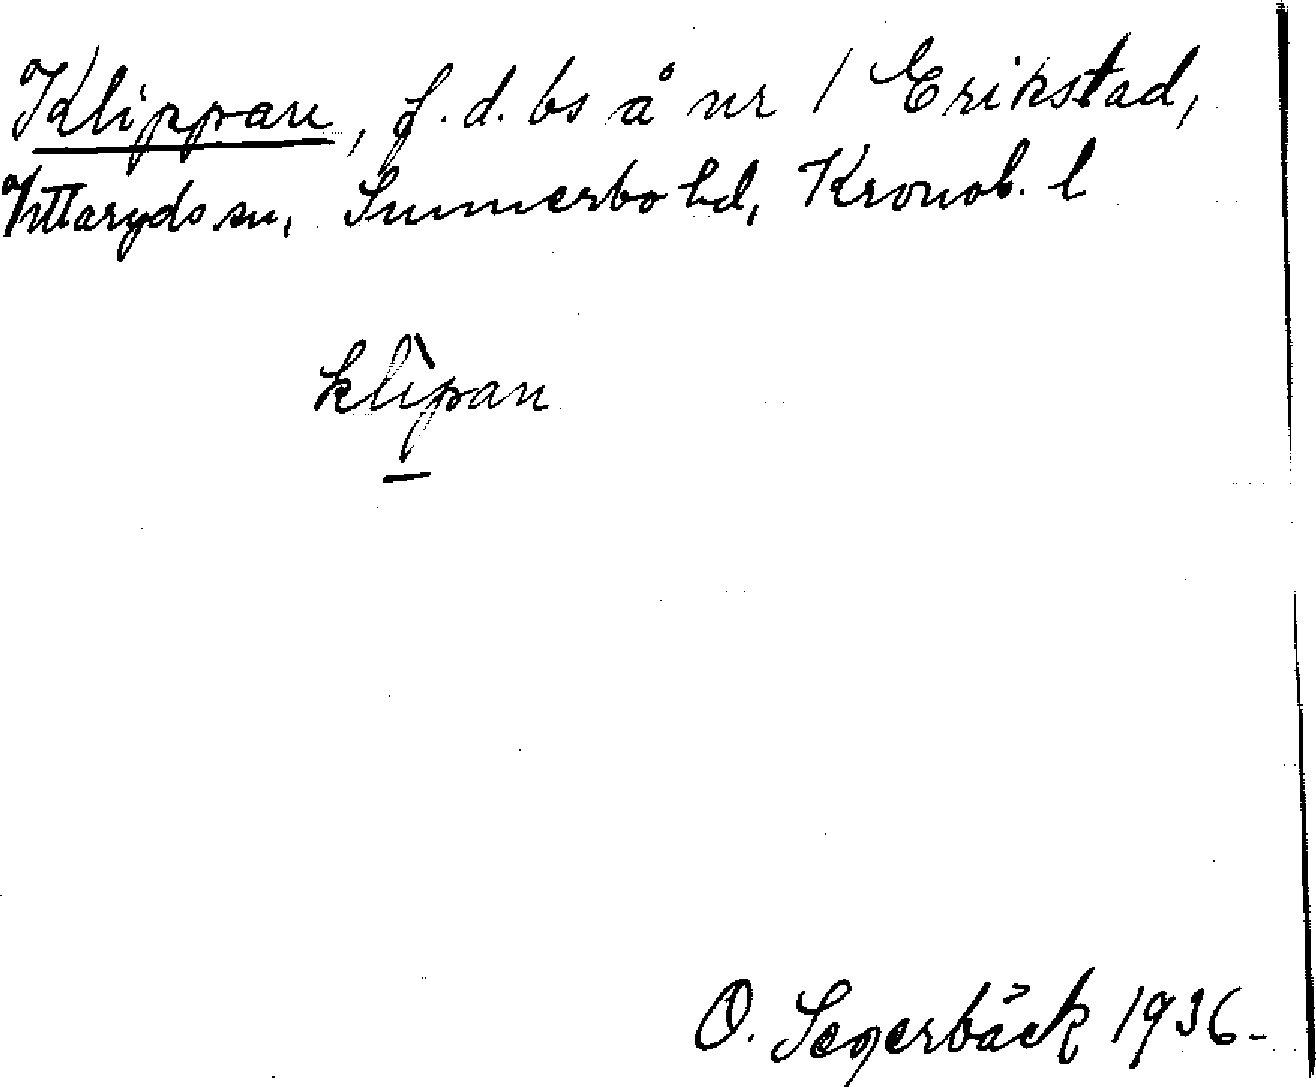 Klippan, f.d. bs å nr 1 Erikstad,
Vittaryds sn, Sunnerbo hd, Kronob. l
klìpan
O. Segerbäck 1936.